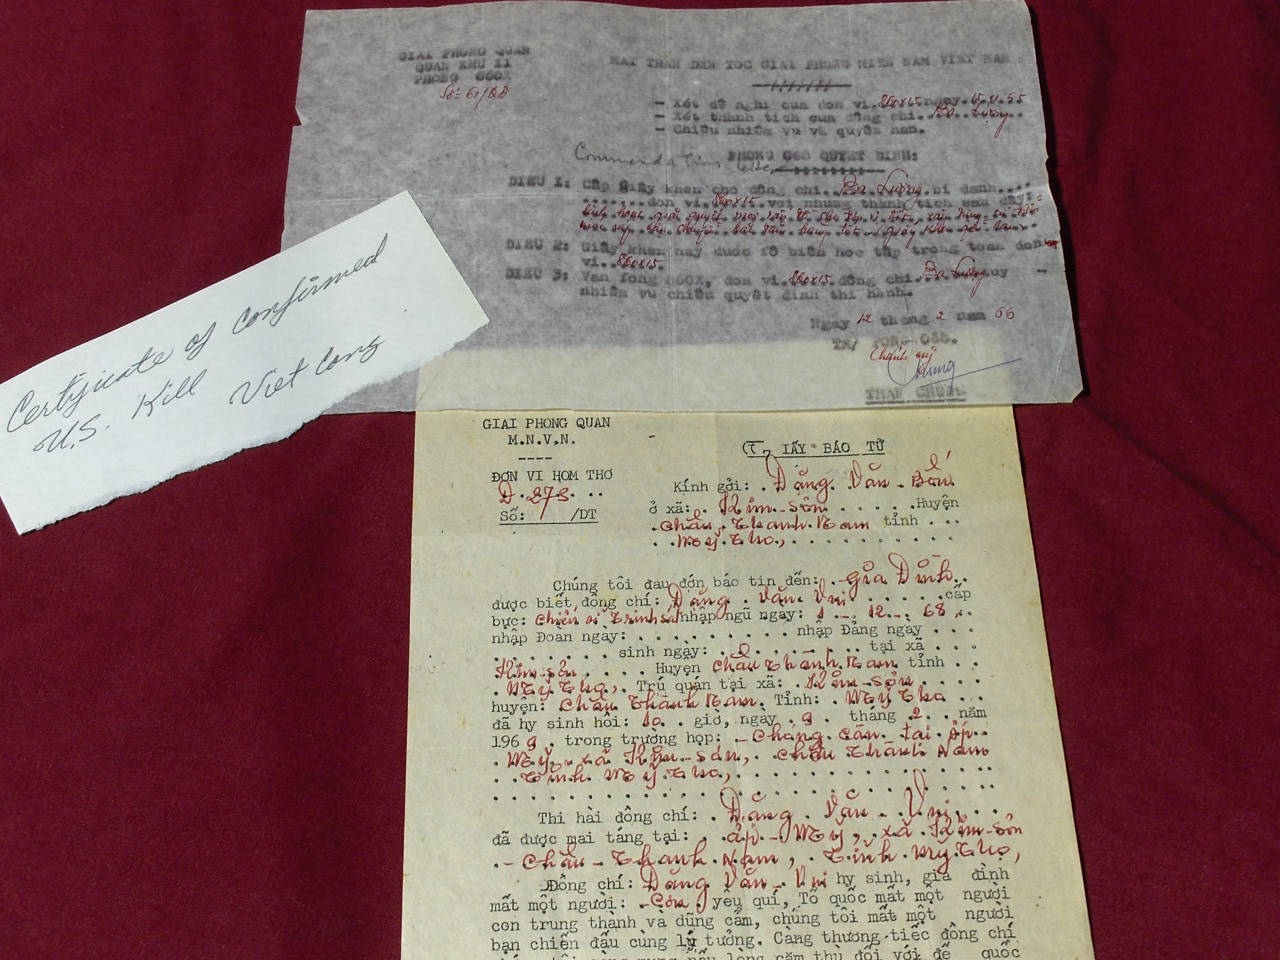 GIAI PHONG QUAN
QUAN KHU II
PHONG 660X
Số: 61/QĐ
MAT TRAN DAN TOC GIAI PHONG MIEN NAM VIET NAM
- Xét đề nghị của đơn vị. 860X15 ngay. 15.11.65
- Xét thành tích của đồng chí. Ba Lượng
- Chiếu nhiệm vụ và quyền hạn.
PHONG 660 QUYET DINH:
DIEU 1: Cấp Giấy khen cho đồng chí. Ba Lượng bí danh....
đơn vị 860X15 với những thành tích sau đây:
DIEU 2: Giấy khen này được phổ biến học tập trong toàn đơn
vị. 860X15.
DIEU 3: Văn fong 660X, đơn vị 860X15 đồng chí Ba Lượng
nhiệm vụ chiếu quyết định thi hành.
Ngay 12 thang 2 nam 66
TM/ FONG 660.
Chánh uỷ
Chung
TRAN CHUNG
Certificate of Confirmed
U.S. Kill Viet Cong
GIAI PHONG QUAN
M.N.V.N.
----
ĐƠN VỊ HOM THƠ
Đ.273. ..
Số: /DT
IẤY BÁO TỬ
Kính gởi: . Đặng Văn Bổn
ở xã: . Kim-Sơn . . . . . Huyện
. Châu Thành Nam tỉnh . . .
. . Mỹ Tho, . . . . . . . . . .
Chúng tôi đau đớn báo tin đến: . Gia Đình. .
được biết đồng chí: Đặng . Văn Vui . . . . . cấp
bực: Chiến sĩ Trinh sát nhập ngũ ngày: 1 - 12 - 68 . .
nhập Đoan ngày: . . . . . . . . . nhập Đảng ngày . . .
. . . . . . . sinh ngày: . . . . . . . . tại xã . . .
Kim sơn . . . . . Huyện Châu Thành Nam tỉnh . .
. Mỹ Tho, . Trú quán tại xã: . Kim-sơn . . . . .
huyện: Châu Thành Nam. Tỉnh: . Mỹ Tho . .
đã hy sinh hồi: 10 . giờ, ngày . 9 . tháng 2 . . năm
1969 . trong trường hợp: - Chống càn tại Ấp
. Mỹ . xã Kim-sơn, Châu Thành Nam
. Tỉnh Mỹ Tho, . . . . . . . . . . . . .
. . . . . . . . . . . . . . . . . . . . . . .
Thi hài đồng chí: . Đặng . Văn . Vui . .
đã được mai táng tại: . ấp - Mỹ, xã Kim-sơn
. - Châu - Thành Nam, . Tỉnh Mỹ Tho,
Đồng chí: Đặng Văn - Vui hy sinh, gia đình
mất một người: - Con . yêu quí, Tổ quốc mất một người
con trung thành và dũng cảm, chúng tôi mất một người
bạn chiến đấu cùng lý tưởng. Càng thương tiếc đồng chí
lòng căm thù đối với đế quốc